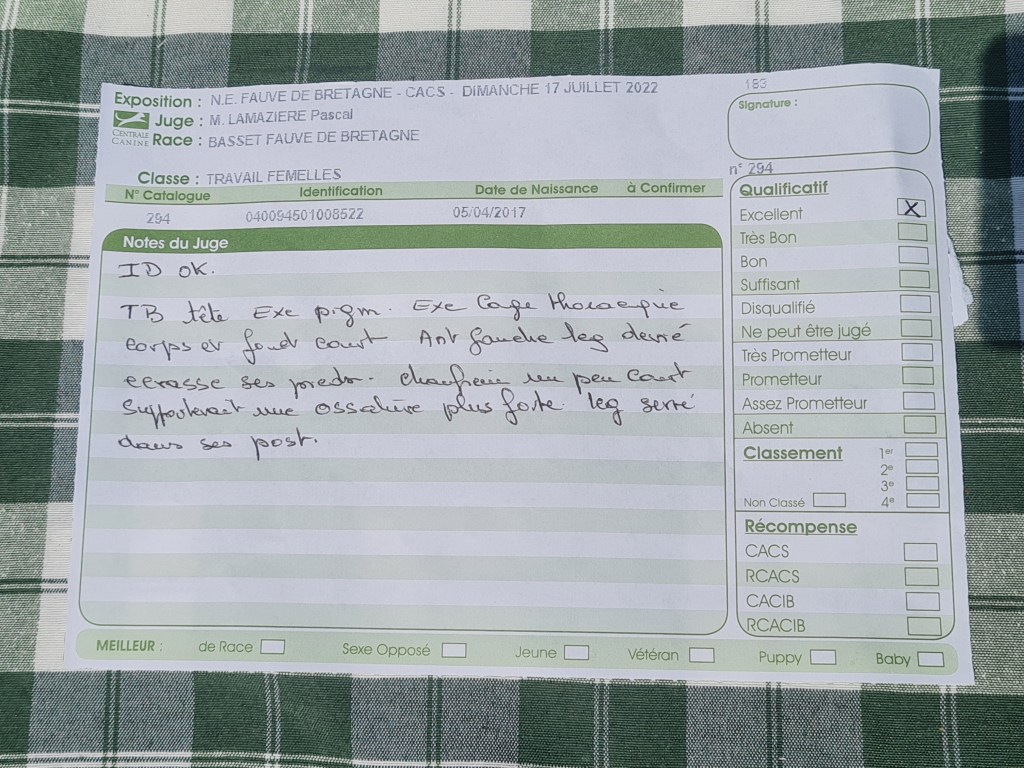 183
Exposition : N.E. FAUVE DE BRETAGNE - CACS - DIMANCHE 17 JUILLET 2022
Signature :
CENTRALE CANINE
Juge : M. LAMAZIERE Pascal
Race : BASSET FAUVE DE BRETAGNE
Classe : TRAVAIL FEMELLES
n° 294
N° Catalogue Identification Date de Naissance à Confirmer
294 040094501008522 05/04/2017
Notes du Juge
ID OK.
TB tête Exc pigm. Exc Cage thoracique
corps et fouet court Ant gauche leg devié
ecrasse ses pieds. chanfrein un peu court
Supporterait une ossature plus forte. leg serré
dans ses post.
Qualificatif
Excellent X
Très Bon
Bon
Suffisant
Disqualifié
Ne peut être jugé
Très Prometteur
Prometteur
Assez Prometteur
Absent
Classement 1er
2e
3e
Non Classé 4e
Récompense
CACS
RCACS
CACIB
RCACIB
MEILLEUR : de Race Sexe Opposé Jeune Vétéran Puppy Baby